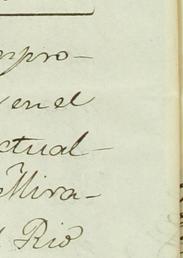 erpro-
en el
ctual-
Mira-
l Rio